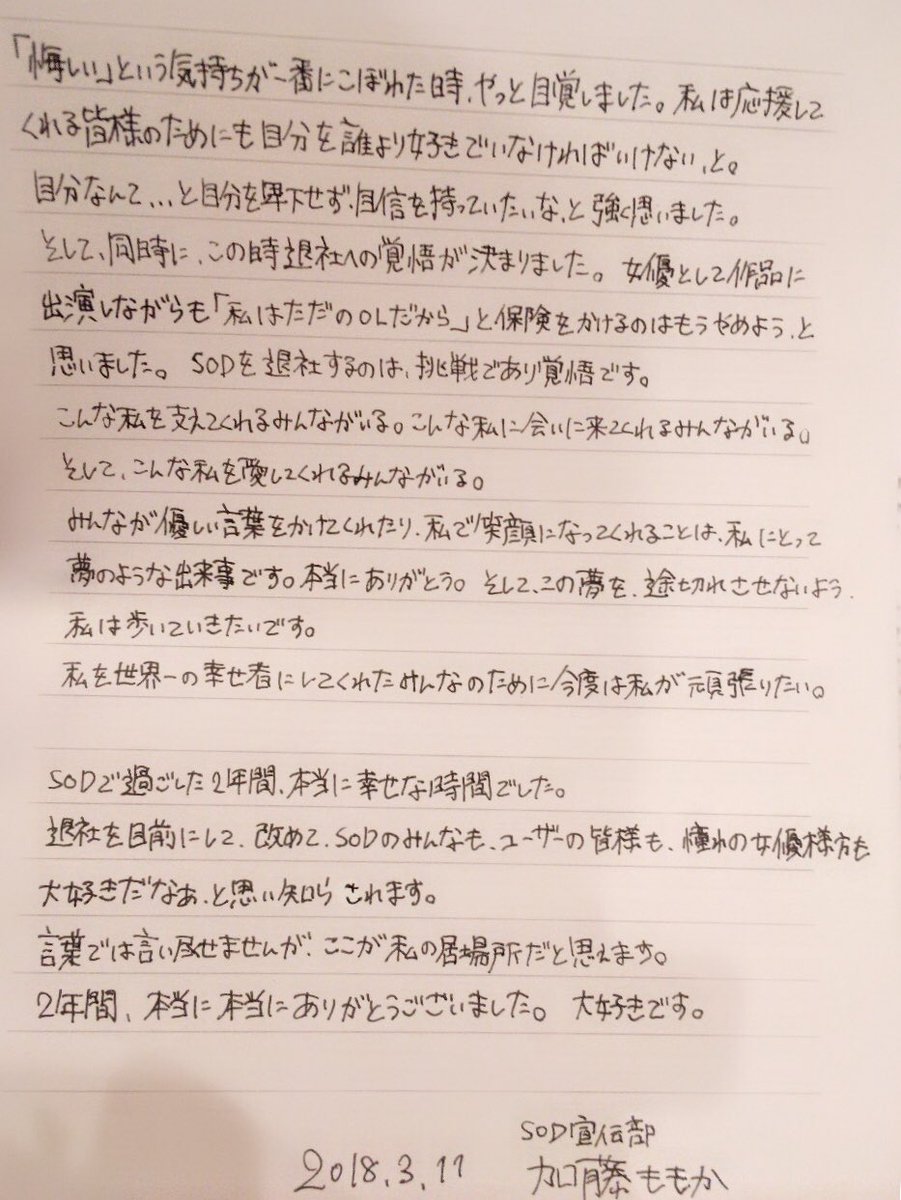 「悔しい」という気持ちが一番にこぼれた時、やっと自覚しました。私は応援して
くれる皆様のためにも自分を誰より好きでいなければいけない、と。
自分なんて...と自分を卑下せず、自信を持っていたいな、と強く思いました。
そして、同時に、この時退社への覚悟が決まりました。女優として作品に
出演しながらも「私はただのOLだから」と保険をかけるのはもうやめよう、と
思いました。SODを退社するのは、挑戦であり覚悟です。
こんな私を支えてくれるみんながいる。こんな私に会いに来てくれるみんながいる。
そして、こんな私を愛してくれるみんながいる。
みんなが優しい言葉をかけてくれたり、私で笑顔になってくれることは、私にとって
夢のような出来事です。本当にありがとう。そして、この夢を、途切れさせないよう、
私は歩いていきたいです。
私を世界一の幸せ者にしてくれたみんなのために今度は私が頑張りたい。
SODで過ごした2年間、本当に幸せな時間でした。
退社を目前にして、改めて、SODのみんなも、ユーザーの皆様も、憧れの女優様方も
大好きだなぁ、と思い知らされます。
言葉では言い尽せませんが、ここが私の居場所だと思えます。
2年間、本当に本当にありがとうございました。大好きです。
SOD宣伝部
2018.3.11 加藤ももか